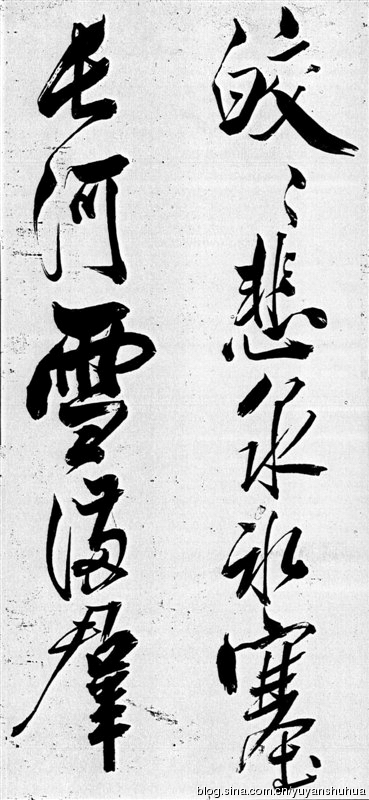 皎々悲泉冰塞
長河雪滿羣
blog.sina.com.cn/yuyanshuhua